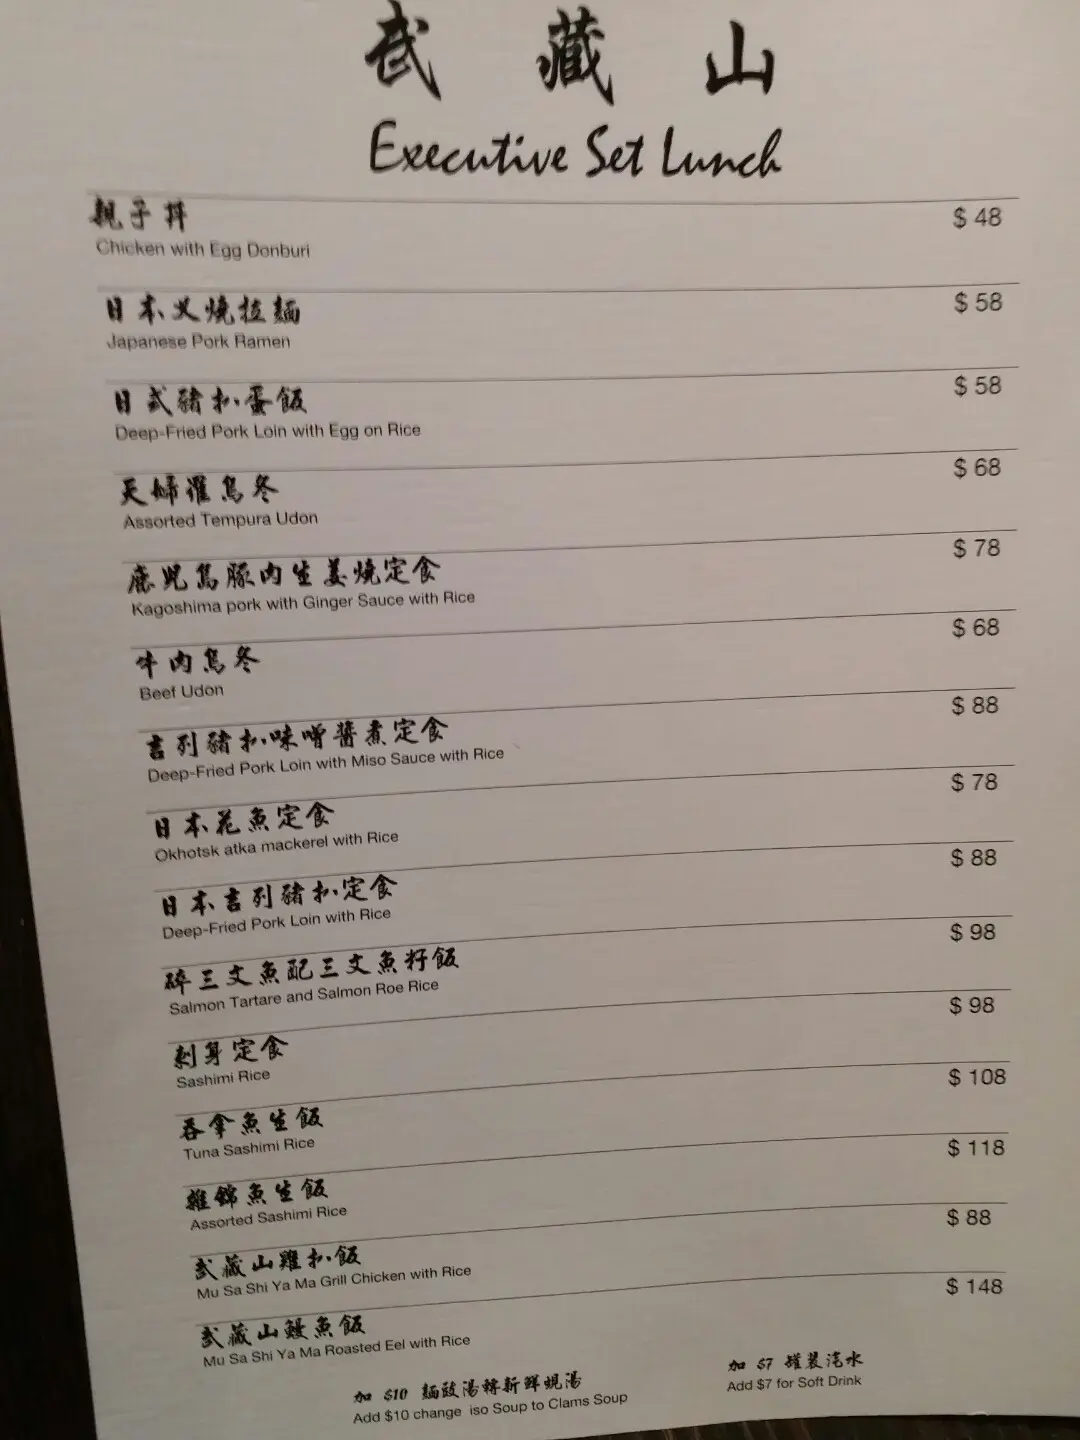 武藏山
Executive Set Lunch
親子丼 $ 48
Chicken with Egg Donburi
日本叉燒拉麵 $ 58
Japanese Pork Ramen
日式豬扒蛋飯 $ 58
Deep-Fried Pork Loin with Egg on Rice
天婦羅烏冬 $ 68
Assorted Tempura Udon
鹿兒島豚肉生姜燒定食 $ 78
Kagoshima pork with Ginger Sauce with Rice
牛肉烏冬 $ 68
Beef Udon
吉列豬扒味噌醬煮定食 $ 88
Deep-Fried Pork Loin with Miso Sauce with Rice
日本花魚定食 $ 78
Okhotsk atka mackerel with Rice
日本吉列豬扒定食 $ 88
Deep-Fried Pork Loin with Rice
碎三文魚配三文魚籽飯 $ 98
Salmon Tartare and Salmon Roe Rice
刺身定食 $ 98
Sashimi Rice
吞拿魚生飯 $ 108
Tuna Sashimi Rice
雜錦魚生飯 $ 118
Assorted Sashimi Rice
武藏山雞扒飯 $ 88
Mu Sa Shi Ya Ma Grill Chicken with Rice
武藏山鰻魚飯 $ 148
Mu Sa Shi Ya Ma Roasted Eel with Rice
加 $10 麵豉湯轉新鮮蜆湯
Add $10 change iso Soup to Clams Soup
加 $7 罐裝汽水
Add $7 for Soft Drink